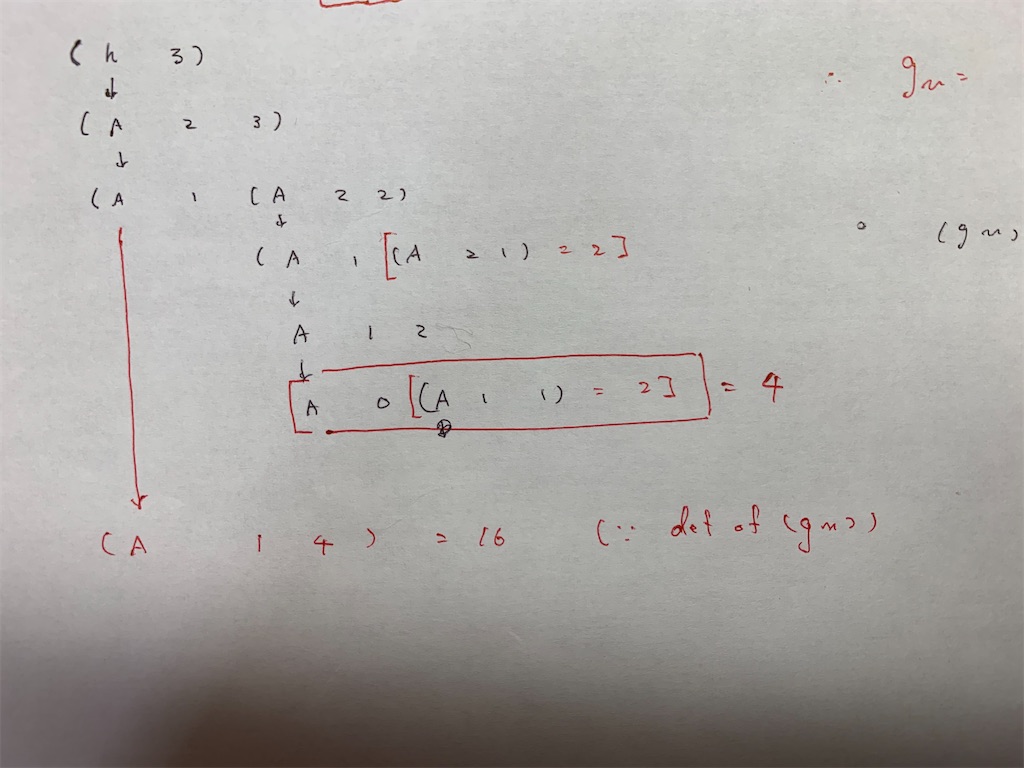 ( h 3 )
∴ g n =
↓
( A 2 3 )
↓
( A 1 ( A 2 2 )
↓
( g n )
( A 1 [ ( A 2 1 ) = 2 ]
↓
A 1 2
↓
A 0 [ ( A 1 1 ) = 2 ] = 4
( A 1 4 ) = 16 ( ∵ def of ( g n ) )